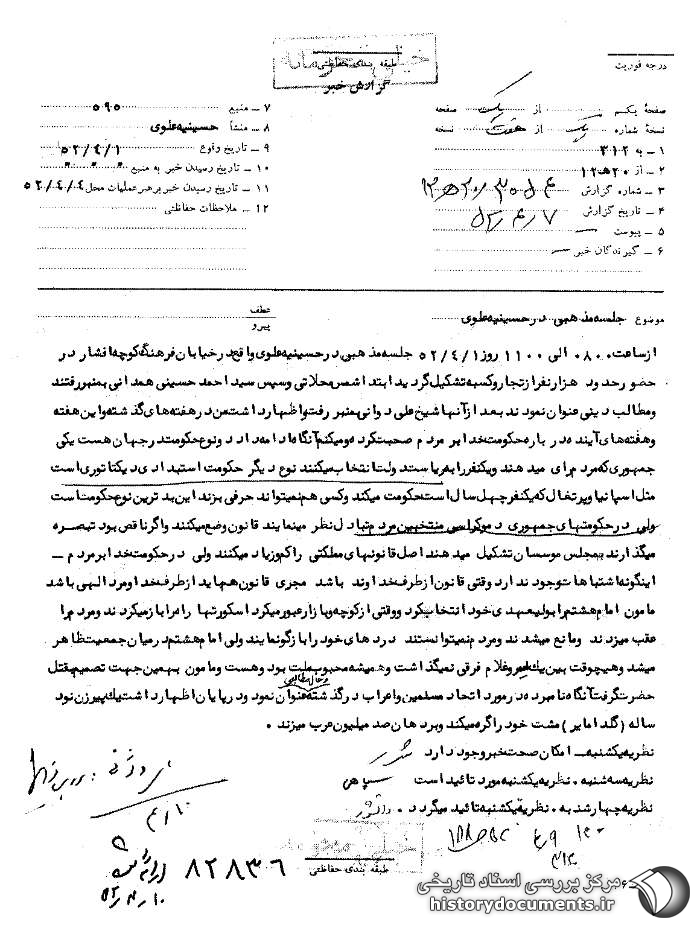 خیلی محرمانه
درجه فوریت
طبقه بندی حفاظتی
گزارش خبر
صفحهٔ یکم از یک صفحه
نسخهٔ شماره یک از هفت نسخه
۱ – به ۳۱۲
۲ – از ۲۰ ه‍ ۱۲
۳ – شماره گزارش
۴ – تاریخ گزارش ۵۲/۴/۷
۵ – پیوست –
۶ – گیرندگان خبر –
۷ – منبع ۵۹۵
۸ – منشأ حسینیه علوی
۹ – تاریخ وقوع ۵۲/۴/۱
۱۰ – تاریخ رسیدن خبر به منبع
۱۱ – تاریخ رسیدن خبر برهبر عملیات محل ۵۲/۴/۴
۱۲ – ملاحظات حفاظتی
موضوع جلسه مذهبی در حسینیه علوی
عطف
پیرو
از ساعت ۰۸۰۰ الی ۱۱۰۰ روز ۵۲/۴/۱ جلسه مذهبی در حسینیه علوی واقع در خیابان فرهنگ کوچه افشار در
حضور حدود هزار نفر از تجار و کسبه تشکیل گردید ابتدا شمس محلاتی و سپس سید احمد حسینی همدانی بمنبر رفتند
و مطالب دینی عنوان نمودند بعد از آنها شیخ علی دوانی بمنبر رفت و اظهار داشت من در هفته های گذشته و این هفته
و هفته های آینده در باره حکومت خدا بر مردم صحبت کرده و میکنم آنگاه ادامه داد دو نوع حکومت در جهان هست یکی
جمهوری که مردم رای میدهند و یکنفر را به ریاست دولت انتخاب میکنند نوع دیگر حکومت استبدادی دیکتاتوری است
مثل اسپانیا و پرتغال که یکنفر چهل سال است حکومت میکند و کسی هم نمیتواند حرفی بزند این بدترین نوع حکومت است
ولی در حکومتهای جمهوری دموکراسی منتخبین مردم تبادل نظر مینمایند قانون وضع میکنند و اگر ناقص بود تبصره
میگذارند مجلس موسسان تشکیل میدهند اصل قانونهای مملکتی را کم و زیاد میکنند ولی در حکومت خدا بر مردم –
اینگونه اشتباهات وجود ندارد وقتی قانون از طرف خداوند باشد مجری قانون هم باید از طرف خدا و مرد الهی باشد
مامون امام هشتم را بولیعهدی خود انتخاب کرد و وقتی از کوچه و بازار عبور میکرد اسکورتها راه را باز میکردند و مردم را
عقب میزدند و مانع میشدند و مردم نمیتوانستند دردهای خود را بازگو نمایند ولی امام هشتم در میان جمعیت ظاهر
میشد و هیچوقت بین یک امیر و غلام فرقی نمیگذاشت و همیشه محبوب ملت بود و هست و مامون بهمین جهت تصمیم بقتل
حضرت گرفت آنگاه نامبرده در مورد اتحاد مسلمین و اعراب در گذشته و حال مطالبی عنوان نمود و در پایان اظهار داشت یک پیرزن نود
ساله (گلدامایر) مشت خود را گره میکند و بر دهان صد میلیون عرب میزند .
نظریه یکشنبه – امکان صحت خبر وجود دارد
نظریه سه شنبه . نظریه یکشنبه مورد تائید است سپاهی
نظریه چهارشنبه . نظریه یکشنبه تائید میگردد . دانشور
۸۲۸۳۶
خیلی محرمانه
طبقه بندی حفاظتی
مرکز بررسی اسناد تاریخی
historydocuments.ir